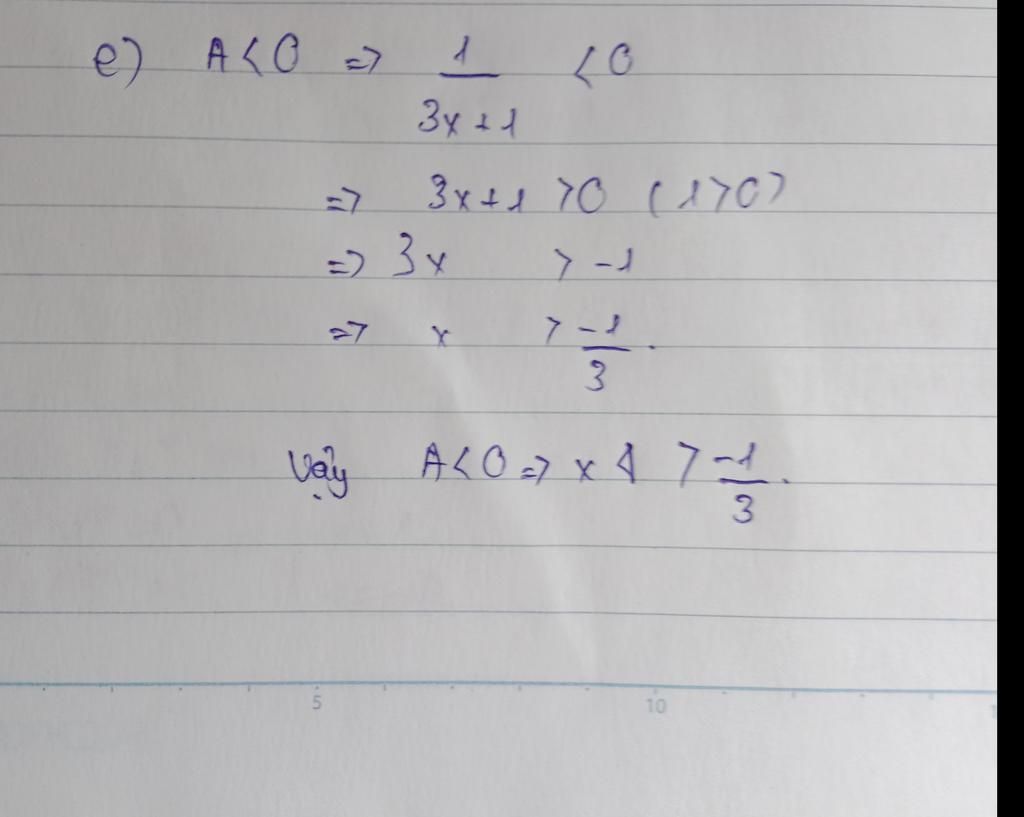 e) A < 0 => 1/(3x+1) < 0
=> 3x+1 > 0 (1 > 0)
=> 3x > -1
=> x > -1/3.
Vậy A < 0 => x > -1/3.
5 10